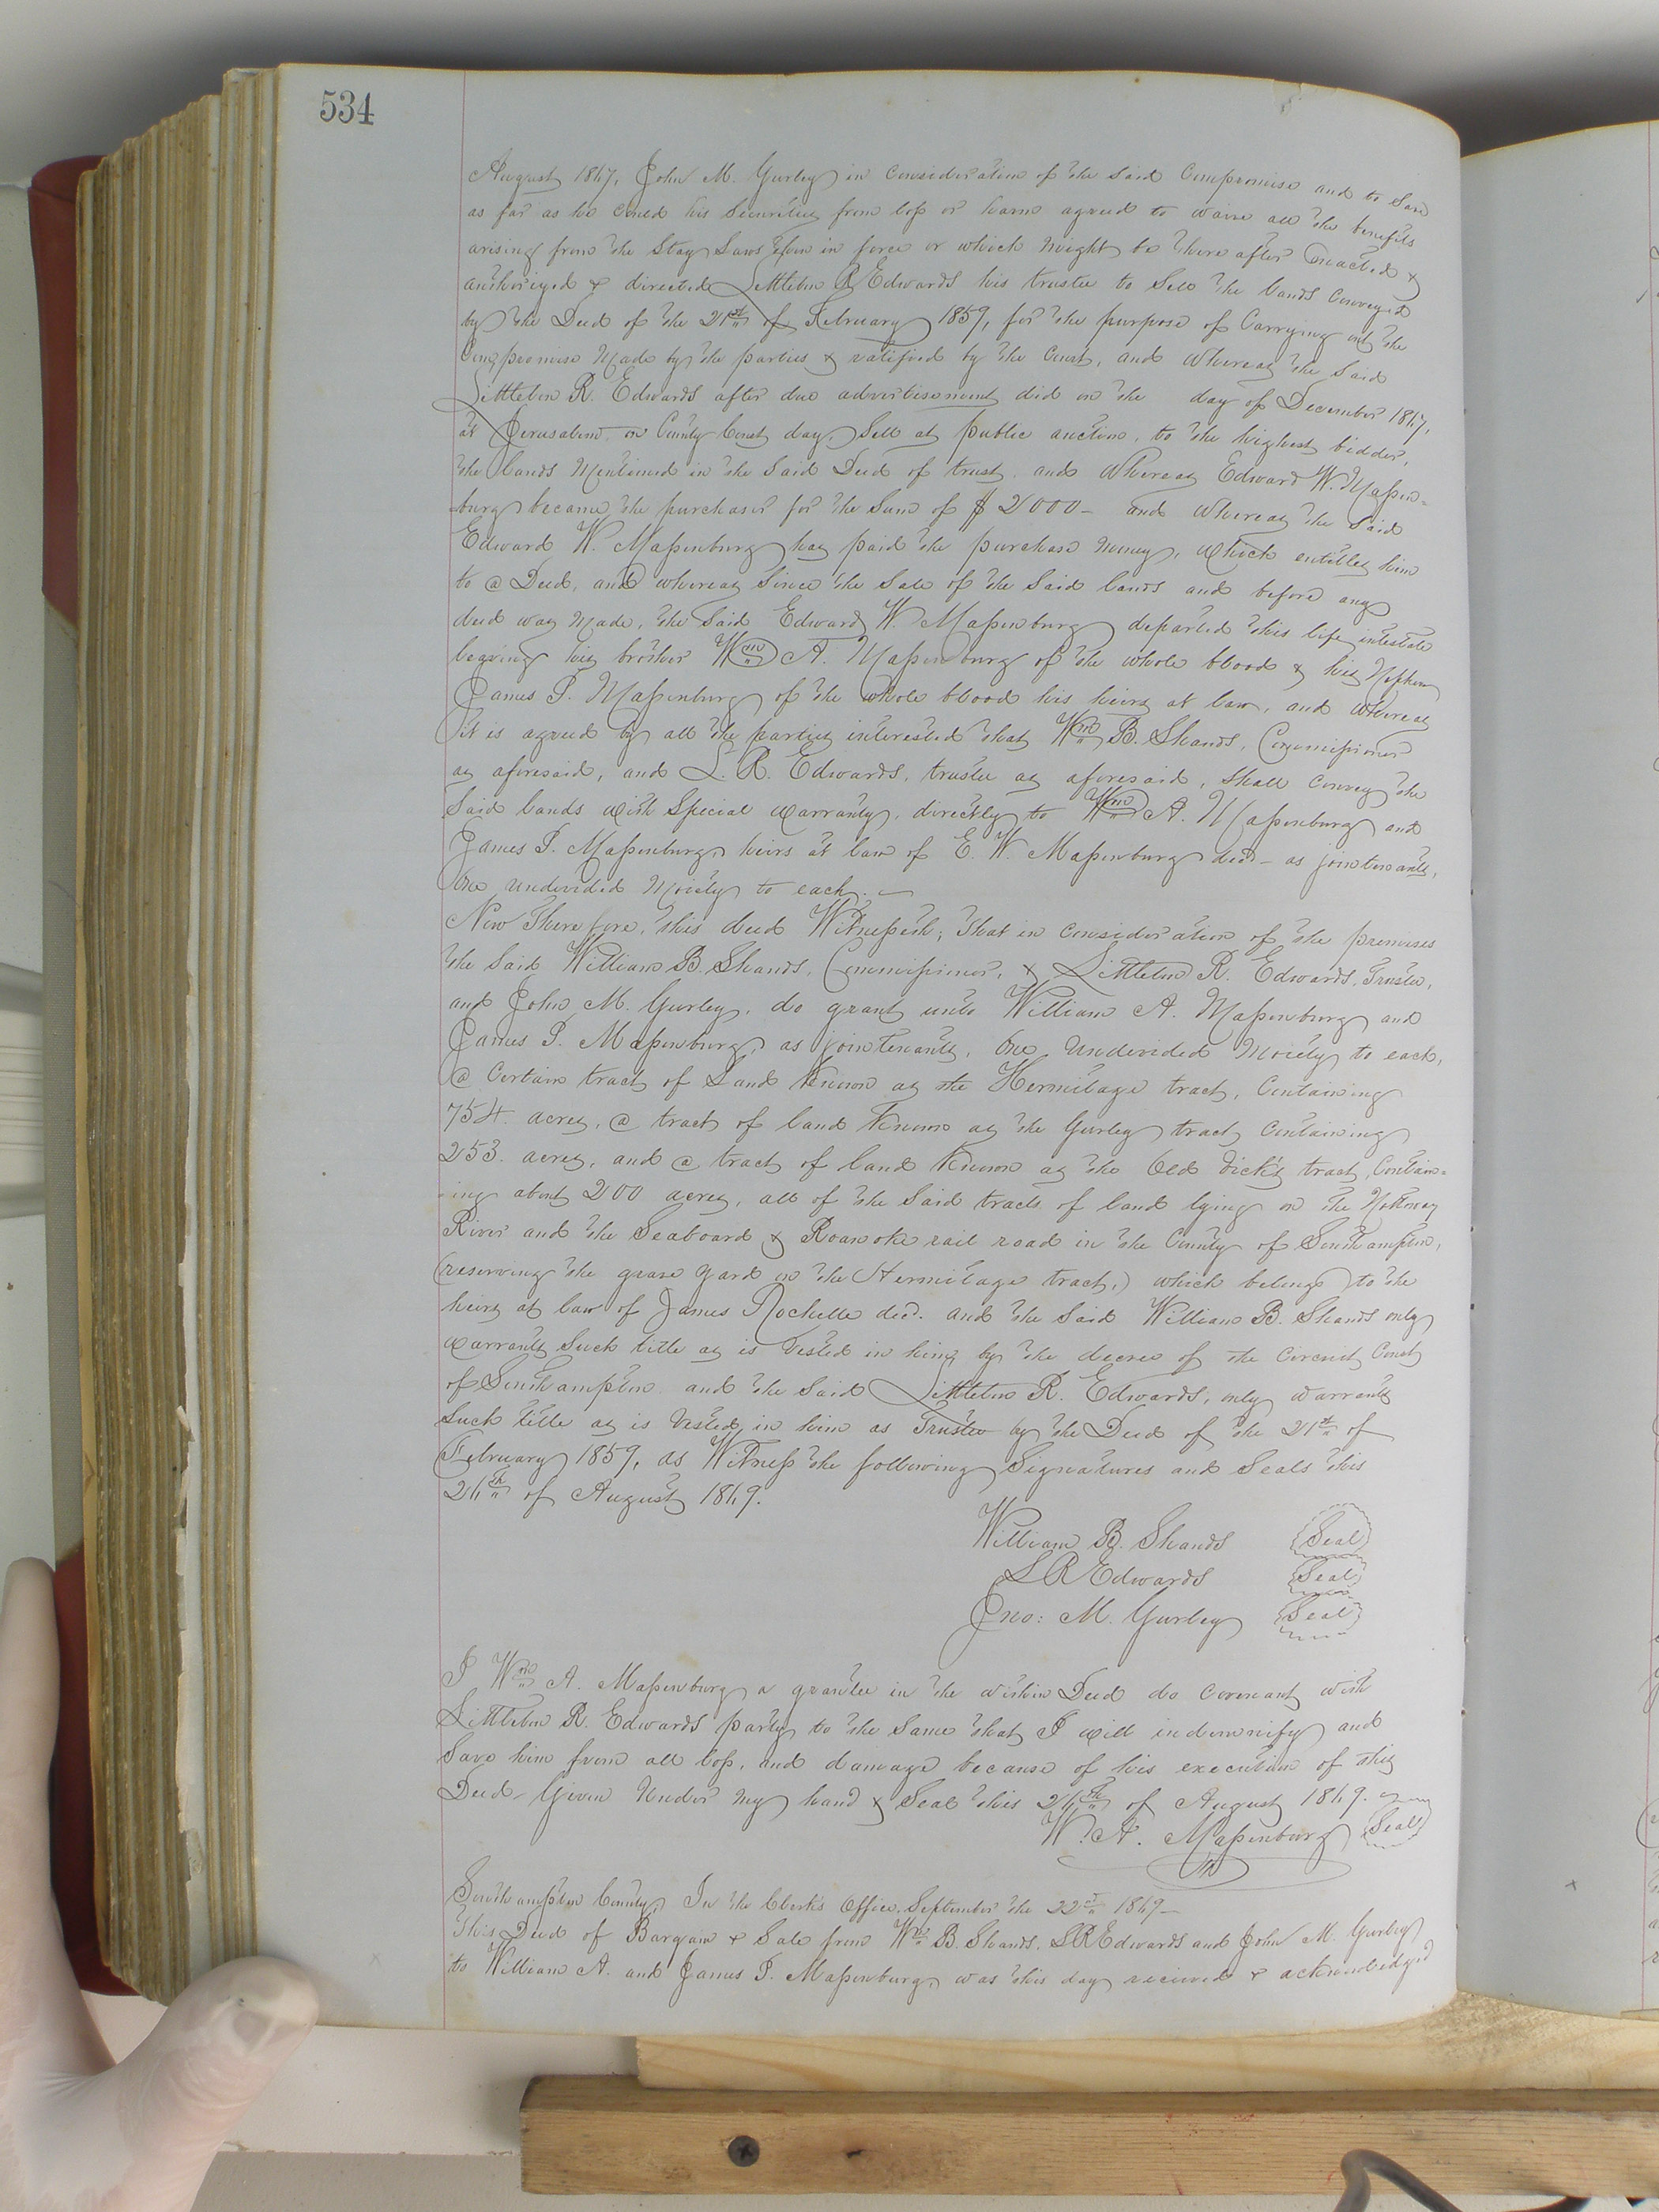 534
August 1867, John M. Gurley in Consideration of the Said Compromise and to Save
as far as he could his Securities from loss or harm agreed to waive all the benefits
arising from the Stay Laws then in force or which might be there after enacted &
authorized & directed Littleton R Edwards his trustee to Sell the lands Conveyed
by the Deed of the 21st of February 1859, for the purpose of Carrying out the
Compromise Made by the parties & ratified by the Court, and Whereas the Said
Littleton R. Edwards after due advertisement did on the day of December 1867,
at Jerusalem on County Court day, Sell at public auction, to the highest bidder,
the lands Mentioned in the Said Deed of trust. and Whereas Edward W. Massen-
-burg became the purchaser for the Sum of $ 2000 - and Whereas the Said
Edward W. Massenburg has paid the purchase money, which entitles him
to a Deed, and whereas Since the Sale of the Said lands and before any
deed was Made, the Said Edward W. Massenburg departed this life intestate
leaving his brother Wm A. Massenburg of the whole blood & his Nephew
James P. Massenburg of the whole blood his heirs at law, and Whereas
it is agreed by all the parties interested that Wm B. Shands, Commissioner
as aforesaid, and L. R. Edwards, trustee as aforesaid, shall Convey the
Said lands with Special Warranty, directly to Wm A. Massenburg and
James P. Massenburg, heirs at law of E. W. Massenburg decd - as jointenants,
One undivided Moiety to each. -
Now Therefore, this deed Witnesseth; That in Consideration of the premises
the Said William B. Shands, Commissioner, & Littleton R. Edwards, Trustee,
and John M. Gurley, do grant unto William A. Massenburg and
James P. Massenburg, as jointenants, One Undivided Moiety to each,
a Certain tract of Land Known as the Hermitage tract, Containing
754 acres, a tract of land Known as the Gurley tract Containing
253. acres, and a tract of land Known as the Old Dick's tract, Contain-
-ing about 200 acres, all of the Said tracts of land lying on the Nottoway
River and the Seaboard & Roanoke rail road in the County of Southampton,
(reserving the grave yard on the Hermitage tract,) which belongs to the
heirs at law of James Rochelle decd. and the Said William B. Shands only
Warrants Such title as is Vested in him by the decree of the Circuit Court
of Southampton. and the Said Littleton R. Edwards, only warrants
Such title as is Vested in him as Trustee by the Deed of the 21st of
February 1859, as Witness the following Signatures and Seals this
26th of August 1869.
William B. Shands Seal
L R Edwards Seal
Jno: M. Gurley Seal
I Wm A. Massenburg a grantee in the within Deed do Covenant with
Littleton R. Edwards party to the Same that I will indemnify and
Save him from all loss, and damage because of his execution of this
Deed - Given Under My hand & Seal this 26th of August 1869.
W. A. Massenburg Seal
Southampton County, In the Clerk's Office September the 22d 1869 -
This Deed of Bargain & Sale from Wm B. Shands, L R Edwards and John M. Gurley
to William A. and James P. Massenburg, was this day recieved & acknowledged